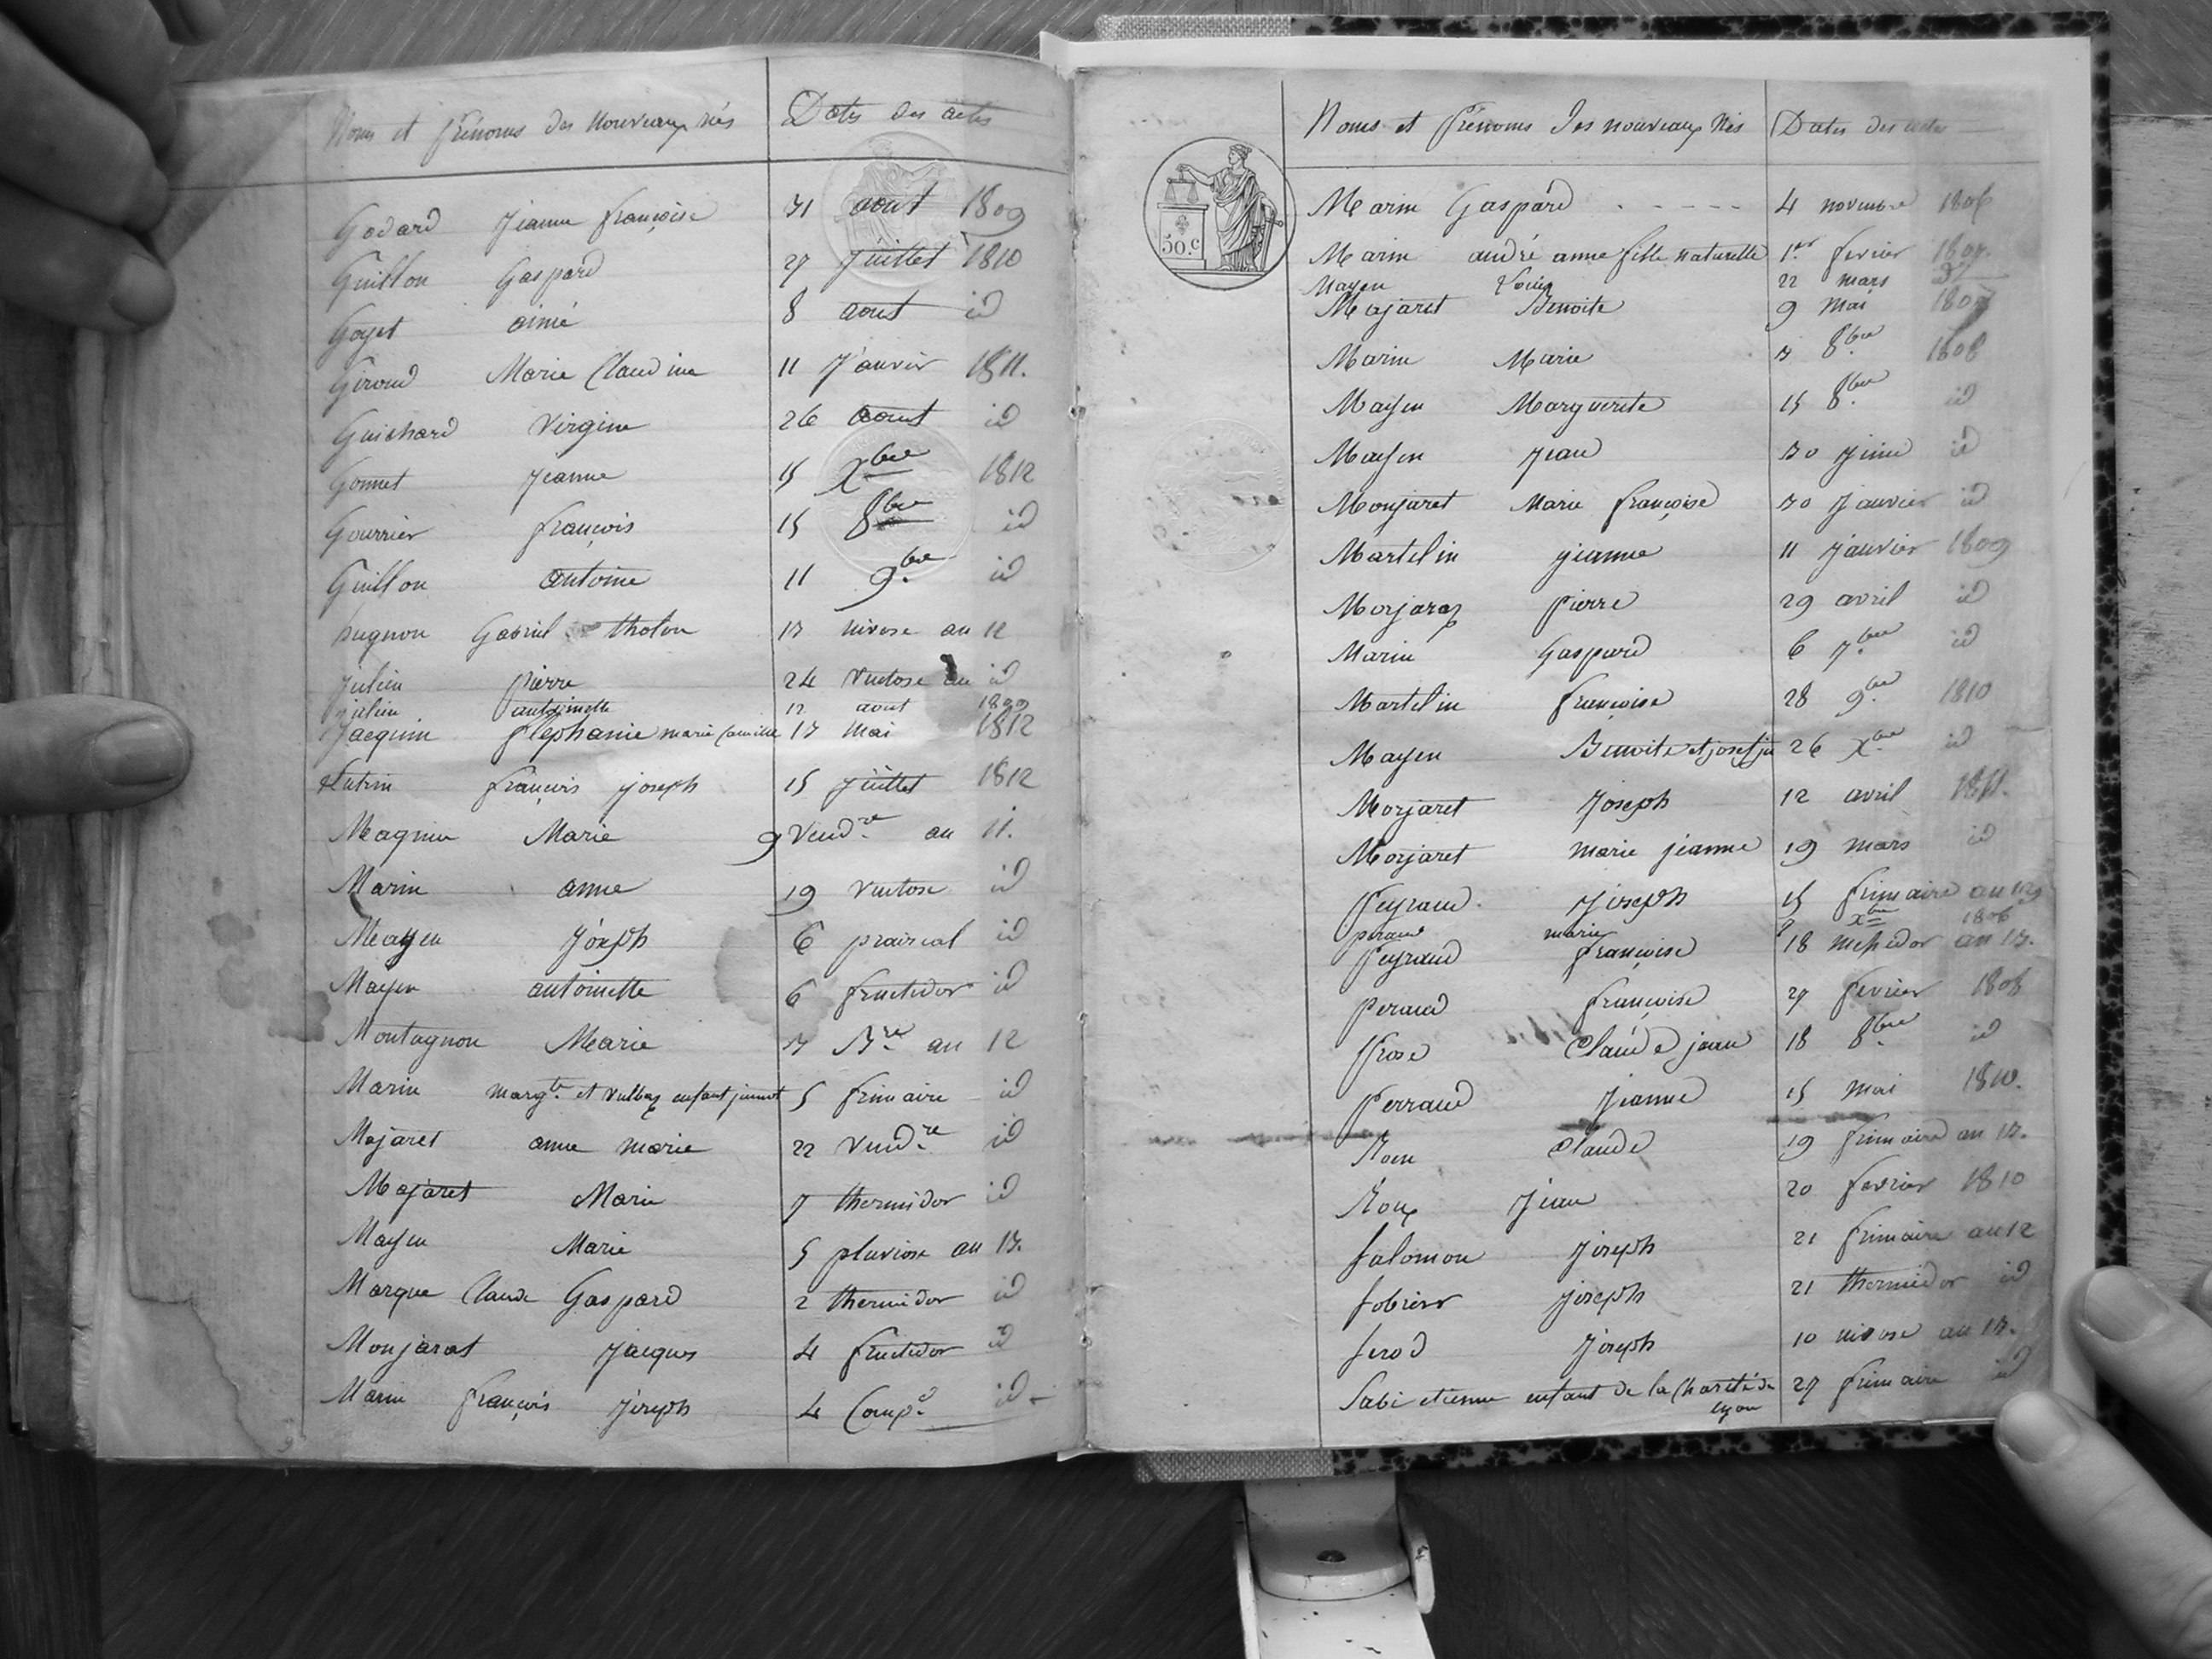 Noms et prénoms des nouveaux nés Dates des actes
Godard Jeanne françoise 31 aout 1809
Guillon Gaspard 27 Juillet 1810
Goyet aimé 8 aout id
Giroud Marie Claudine 11 Janvier 1811.
Guichard Virgine 26 aout id
Gonnet Jeanne 15 Xbre 1812
Gourrier françois 15 8bre id
Guillon antoine 11 9bre id
hugnon Gabriel tholon 13 nivose an 12
Julien pierre 24 ventose an id
julien antoinette 12 aout 1809
Jacquin Stéphanie marie Camille 13 Mai 1812
françois joseph 15 Juillet 1812
Magnin Marie 9 Vendre an 11.
Marin anne 19 Ventose id
Mayen Joseph 6 prairial id
Mayen antoinette 6 fructidor id
Montagnon Marie 3 Bre an 12
Marin margte et vulbaz enfant jumot 5 frimaire id
Majaret anne marie 22 Vendre id
Majaret Marie 7 thermidor id
Mayen Marie 5 pluviose an 13.
Marque Claude Gaspard 2 thermidor id
Monjarat Jacques 4 fructidor id
Marin françois Joseph 4 Comp.e id
Noms et Prenoms des nouveaux Nés Dates des actes
50.c
Marin Gaspard 4 novembre 1806
Marin andré anne fille naturelle 1er fevrier 1807.
Mayen Louise 22 mars do
Majaret Benoite 9 Mai 1807
Marin Marie 3 8bre 1808
Mayen Marguerite 15 8bre id
Mayen Jean 30 Juin id
Monjaret Marie françoise 30 Janvier id
Martelin jeanne 11 Janvier 1809
Morjaraz pierre 29 avril id
Marin Gaspard 6 7bre id
Martelin françoise 28 9bre 1810
Mayen Benoite et josef ju 26 Xbre id
Morjaret Joseph 12 avril 1811.
Morjaret marie jeanne 19 mars id
Peyraud Joseph 15 frimaire an
peraud marie 2 xbre 1806
Peyraud françoise 18 messidor an 13.
Peraud françoise 27 fevrier 1808
Prose Claude jean 18 8bre id
Perraud Jeanne 15 Mai 1810.
Roux Claude 19 frimaire an 13.
Roux Jean 20 fevrier 1810
Salomon Joseph 21 frimaire an 12
Sobrier joseph 21 thermidor id
Serod Joseph 10 nivose an 13.
Sabi etienne enfant de la Charité de 27 frimaire id
lyon